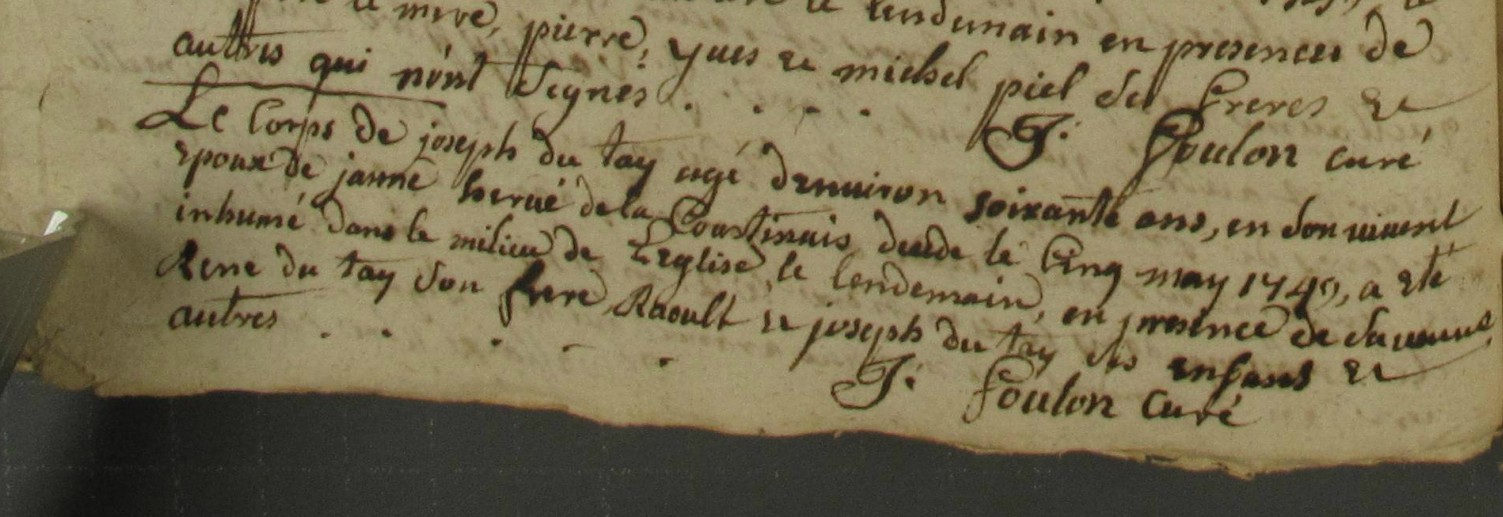 le lendemain en presences de
mere, pierre, yves et michel piel ses freres et
autres qui n'ont signés . . . .
J: Foulon curé
Le Corps de joseph du tay agé denviron soixante ans, en son vivant
epoux de janne hervé de la decede le Cinq may 1749, a eté
inhumé dans le milieu de L'Eglise, le lendemain, en presence de sa veuve,
Rene du tay son frere, Raoult et joseph du tay ses enfans et
autres . . . . .
J: foulon Curé